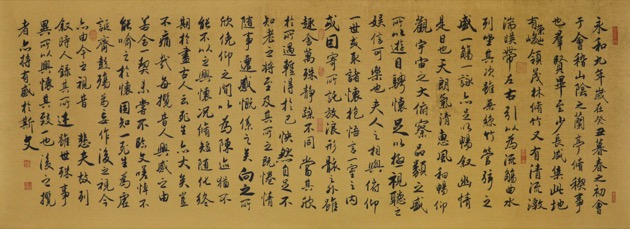 永和九年歲在癸丑暮春之初會
于會稽山陰之蘭亭修稧事
也群賢畢至少長咸集此地
有崇山峻領茂林修竹又有清流激
湍暎帶左右引以為流觴曲水
列坐其次雖無絲竹管弦之
盛一觴一詠亦足以暢敘幽情
是日也天朗氣清惠風和暢仰
觀宇宙之大俯察品類之盛
所以遊目騁懷足以極視聽之
娛信可樂也夫人之相與俯仰
一世或取諸懷抱悟言一室之內
或因寄所託放浪形骸之外雖
趣舍萬殊靜躁不同當其欣
於所遇暫得於己快然自足不
知老之將至及其所之既惓情
隨事遷感慨係之矣向之所
欣俛仰之間以為陳迹猶不
能不以之興懷況修短隨化終
期於盡古人云死生亦大矣豈
不痛哉每攬昔人興感之由
若合一契未嘗不臨文嗟悼不
能喻之於懷固知一死生為虛
誕齊彭殤為妄作後之視今
亦由今之視昔悲夫故列
敘時人錄其所述雖世殊事
異所以興懷其致一也後之攬
者亦將有感於斯文